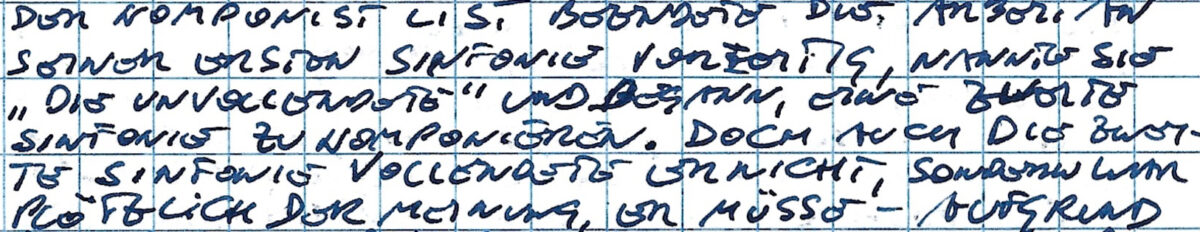 DER KOMPONIST LIST BEENDETE DIE ARBEIT AN
SEINER ERSTEN SINFONIE VORZEITIG, NANNTE SIE
„DIE UNVOLLENDETE“ UND BEGANN, EINE ZWEITE
SINFONIE ZU KOMPONIEREN. DOCH AUCH DIE ZWEI-
TE SINFONIE VOLLENDETE ER NICHT, SONDERN WAR
PLÖTZLICH DER MEINUNG, ER MÜSSE – AUFGRUND